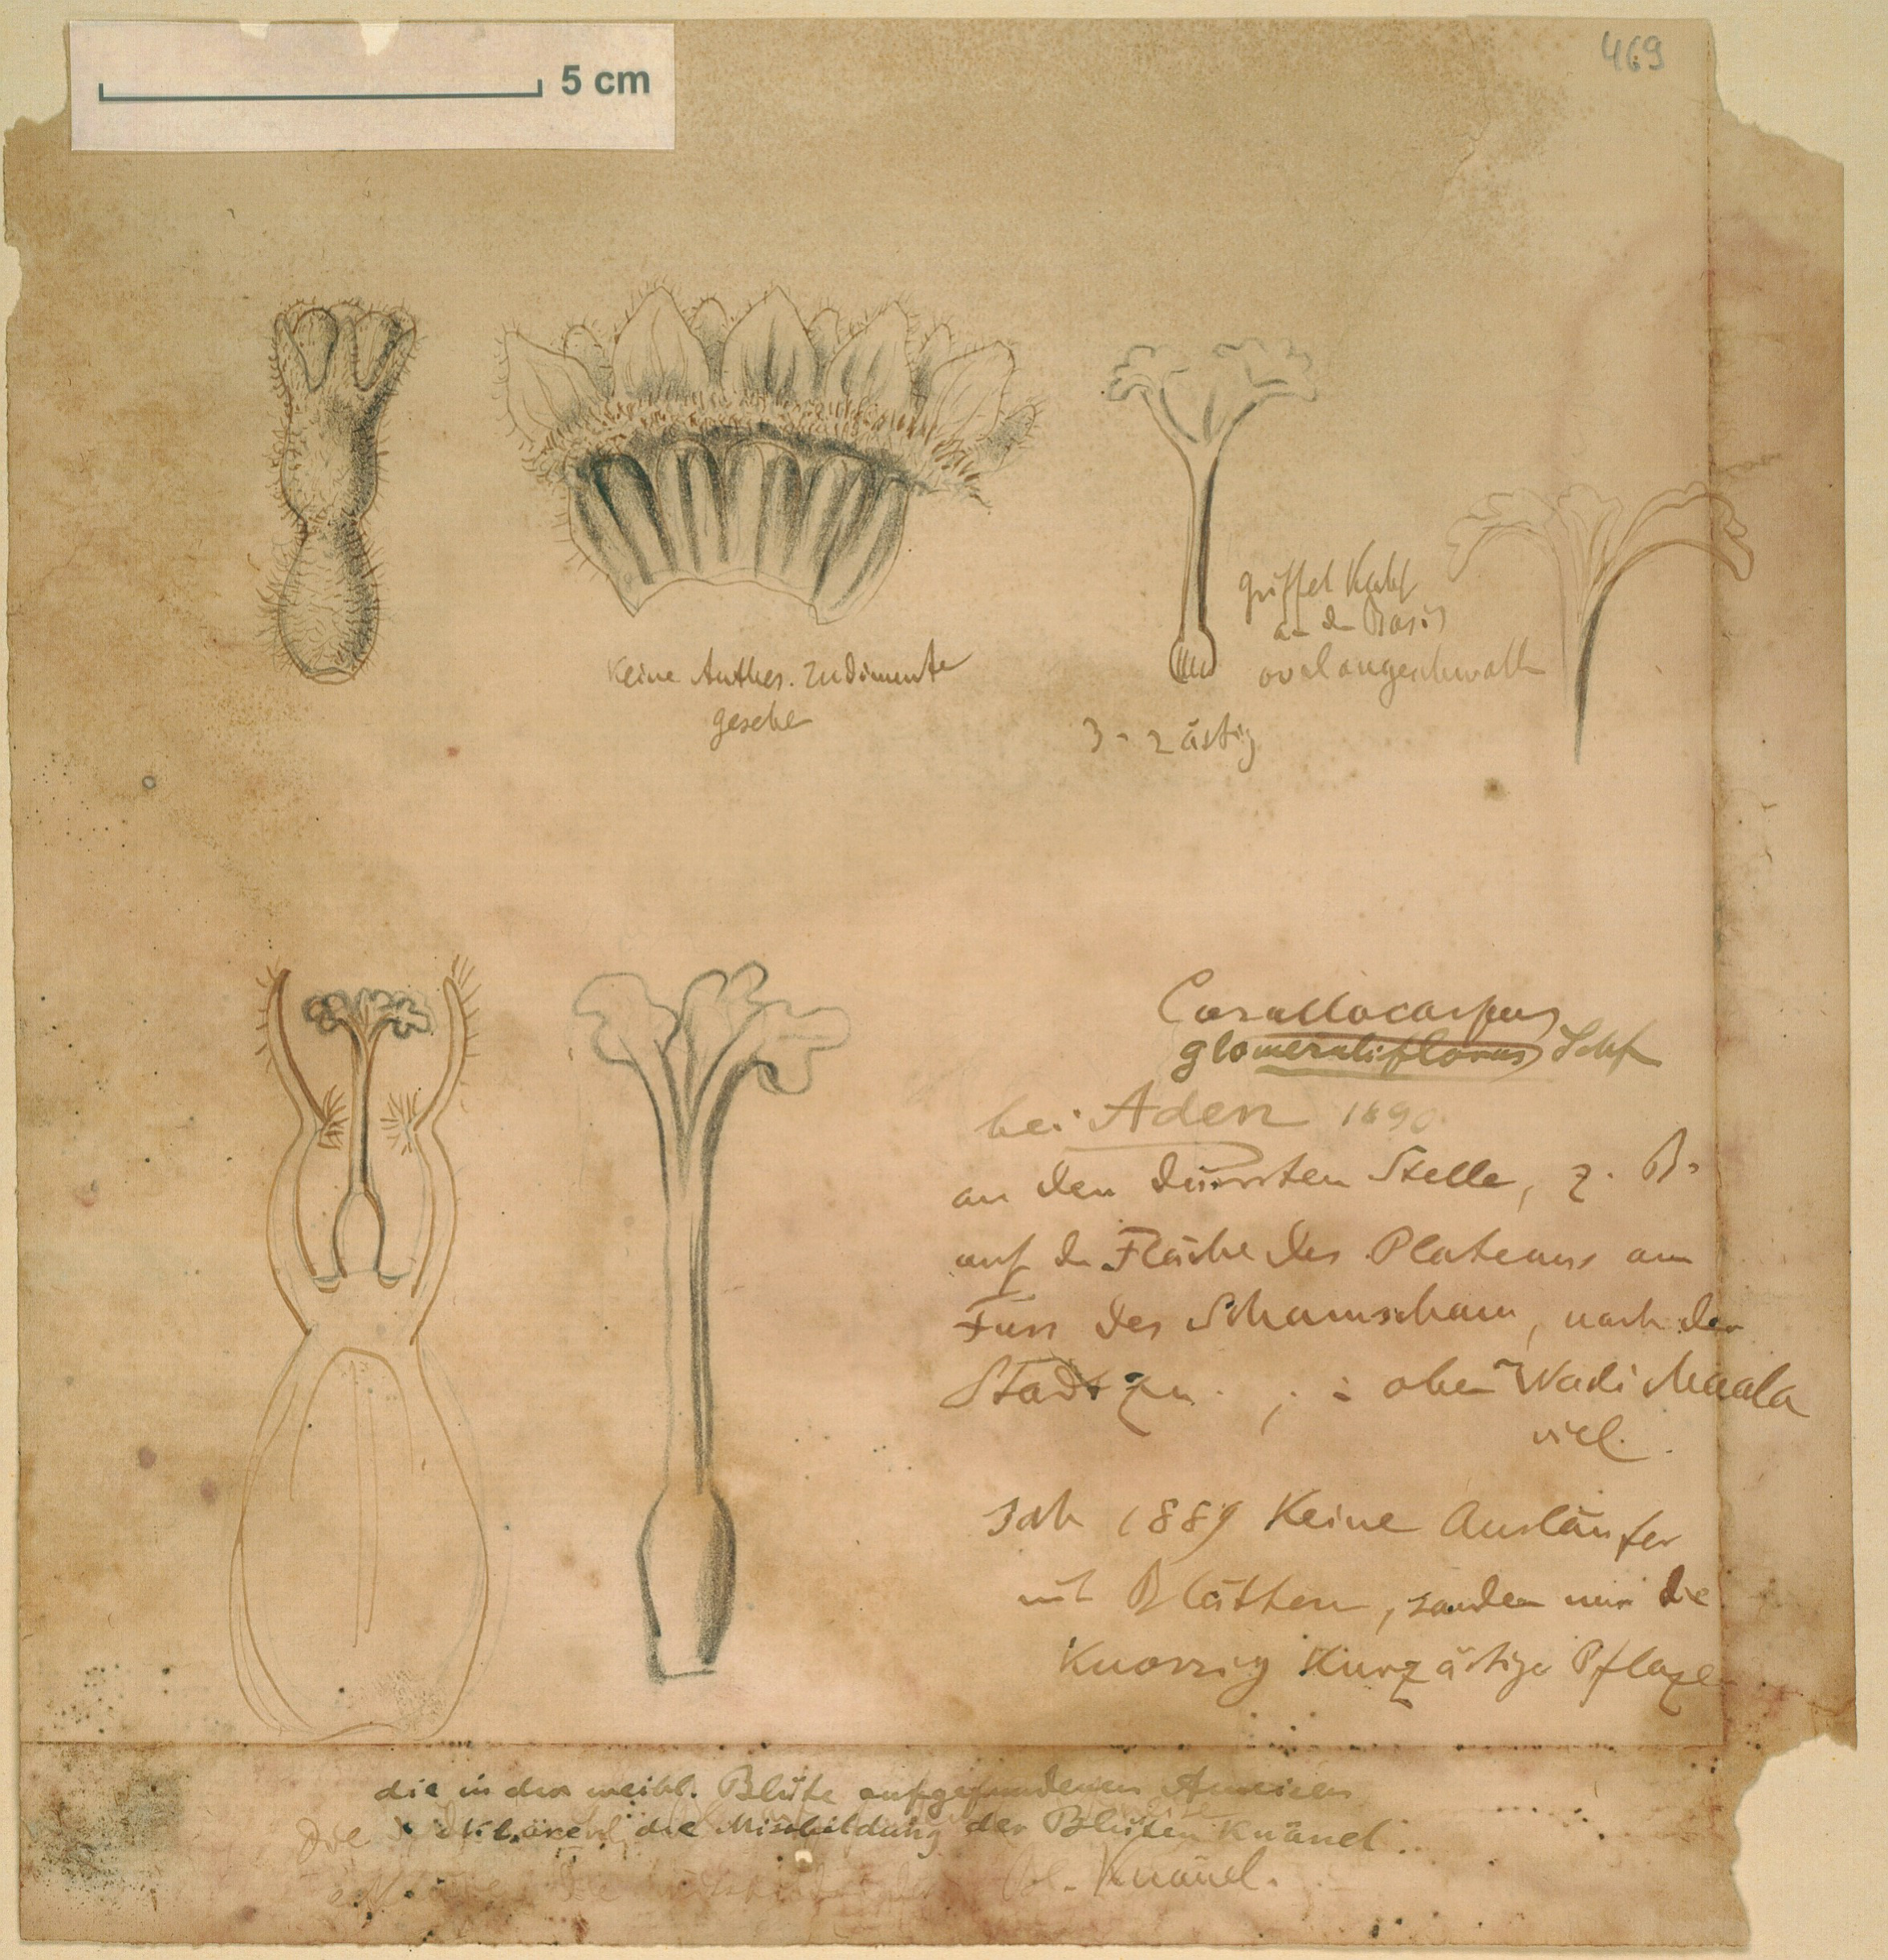 5 cm
469
Keine Anther. rudimente
gesehen
Griffel Kahl
an d. Basis
oval angeschwoll
3-2 ästig
Corallocarpus
glomeruliflorus Schf
bei Aden 1890
an den dürrsten Stelle, z. B.
auf d. Fläche des Plateaus am
Fuss des Schamscham, nach der
Stadt zu. oben Wadi Maala
viel.
Sah 1889 Keine Ausläufer
mit Blättern, sondern nur die
Knorrig Kurzästige Pflaze
die in der weibl. Blüte aufgefundenen Ameisen
Die erklären die Missbildung der Blüten Knäuel.
die Bl. Knäuel.